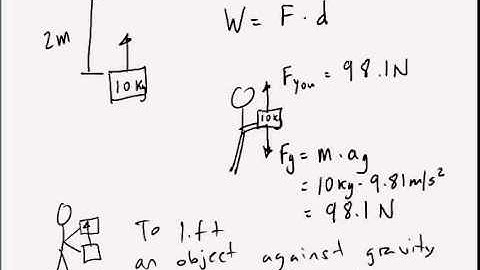 W = F · d
2m
10 Kg
F you = 98.1N
10k
Fg = m · ag
= 10Kg · 9.81m/s²
= 98.1 N
To lift
an object against gravity